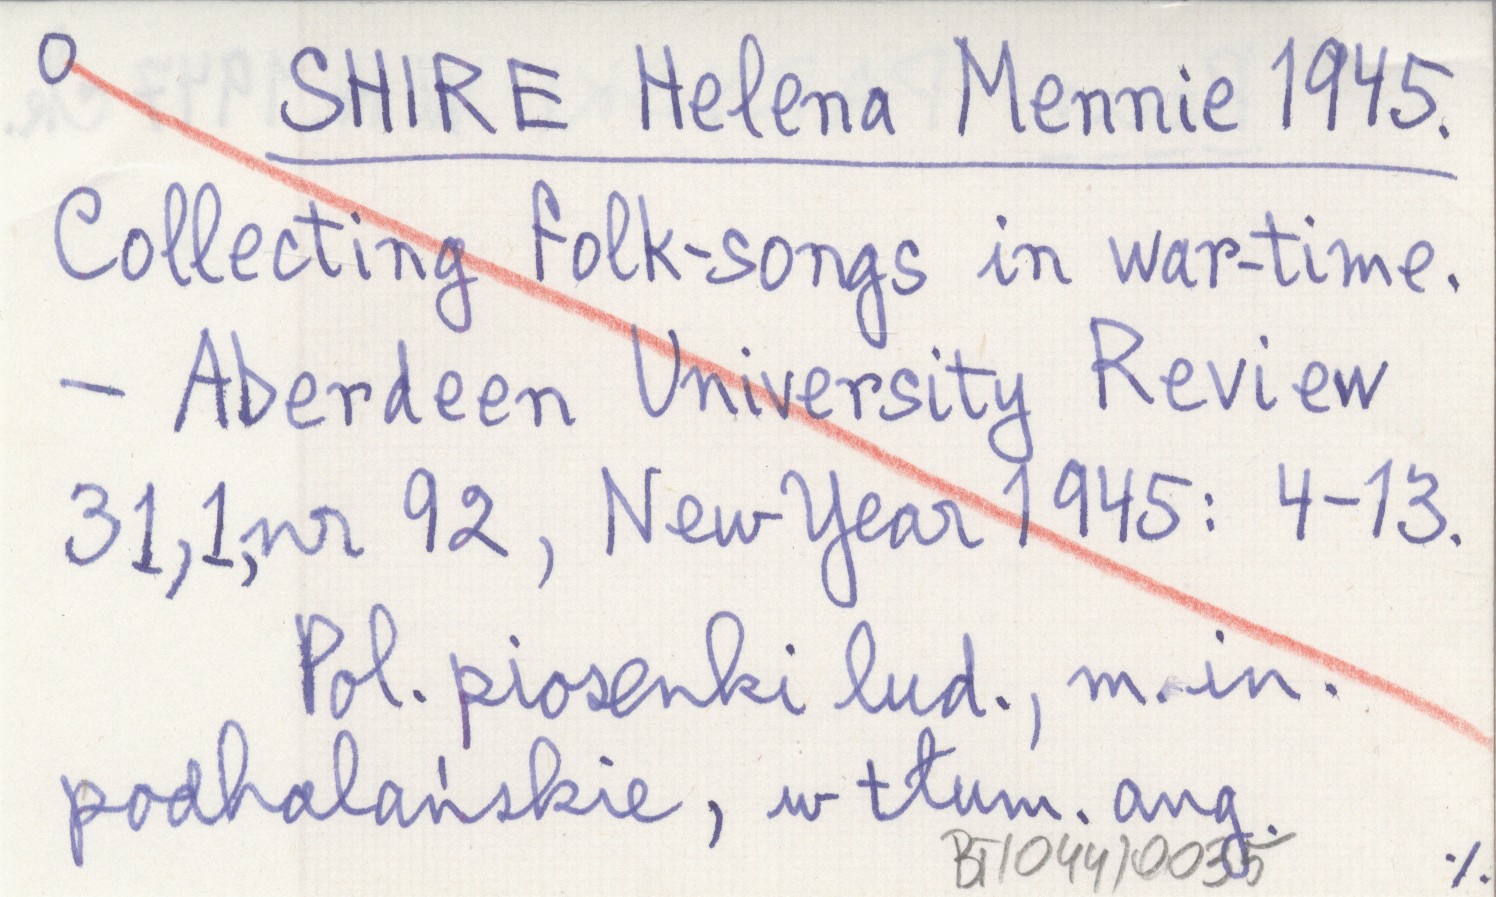 O SHIRE Helena Mennie 1945.
Collecting folk-songs in war-time.
– Aberdeen University Review
31,1, nr 92, New-Year 1945: 4-13.
Pol. piosenki lud., m. in.
podhalańskie, w tłum. ang.
BT/044/0035
./.